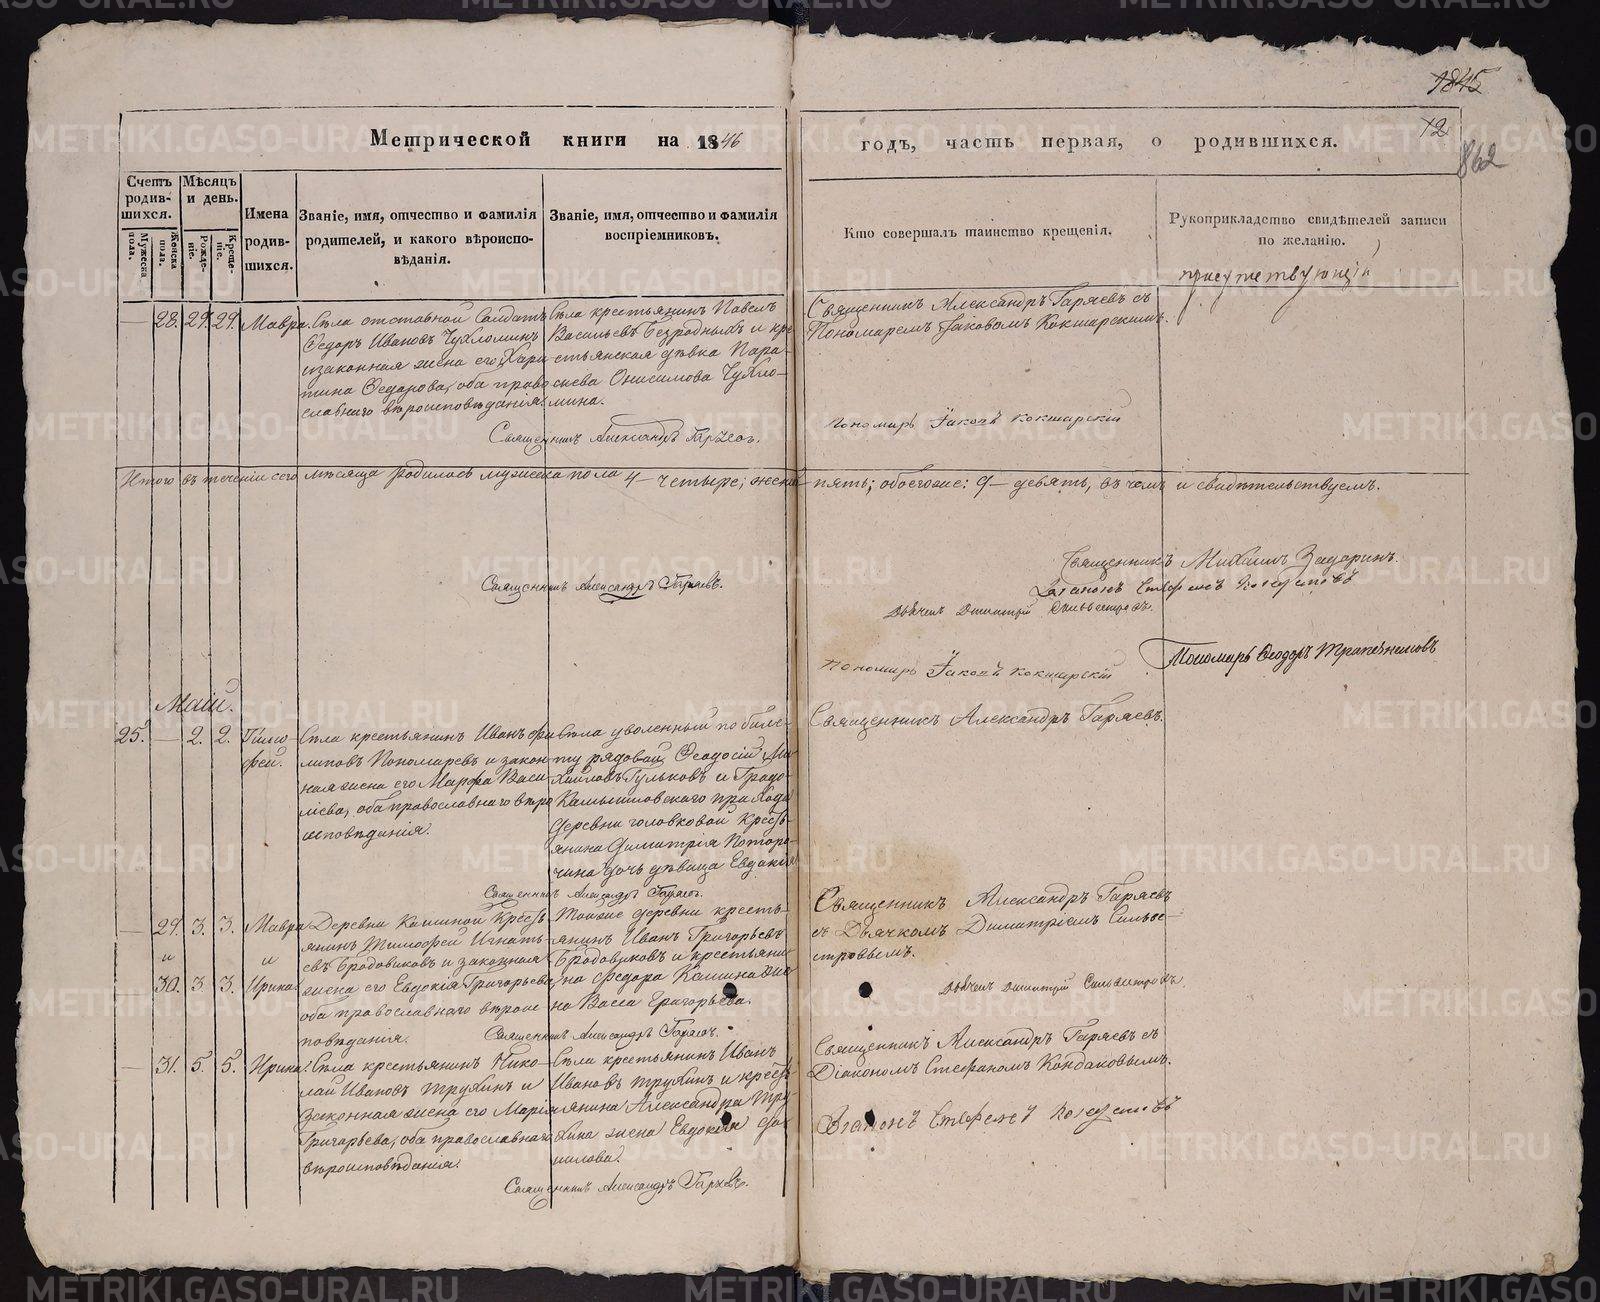 1845
Метрической книги на 1846
годъ, часть первая, о родившихся.
12
862
Счетъ родив-шихся.
Мужеска пола.
Женска пола.
Мѣсяцъ и день.
Рожде-ніе.
Креще-ніе.
Имена родив-шихся.
Званіе, имя, отчество и фамилія
родителей, и какого вѣроиспо-
вѣданія.
Званіе, имя, отчество и фамилія
воспріемниковъ.
Кто совершалъ таинство крещенія.
Рукоприкладство свидѣтелей записи
по желанію.
присутствующій
28. 29. 29. Мавра.
Села отставной Солдатъ
Ѳедоръ Ивановъ Чухломинъ
и законная жена его Хари-
тина Ѳедорова, оба право-
славнаго вѣроисповѣданія.
Села крестьянинъ Павелъ
Васильевъ Безродныхъ и кре-
стьянская дѣвка Пара-
скева Онисимова Чухло-
мина.
Священникъ Александръ Гаряевъ.
Священникъ Александръ Гаряевъ съ
Пономаремъ Іаковомъ Кокшарскимъ.
Пономарь Іаковъ Кокшарскій
Итого въ теченіи сего мѣсяца родилось мужеска пола 4 — четыре; женска пять; обоего же: 9 — девять, въ чемъ и свидѣтельствуемъ.
Священникъ Александръ Гаряевъ.
Священникъ Михаилъ
Діаконъ Стефанъ Кондаковъ
Дьячекъ Димитрій Сильвестровъ.
Пономарь Ѳеодоръ Трапезниковъ
Пономарь Іаковъ Кокшарскій
Маій.
25. — 2. 2. Тимо-
фей.
Села крестьянинъ Иванъ Фи-
липовъ Пономаревъ и закон-
ная жена его Марфа Васи-
лієва, оба православнаго вѣро-
исповѣданія.
Села уволенный по биле-
ту рядовой Ѳеодосій Ми-
хайловъ Гульковъ и Градо-
Камышловскаго прихода
деревни Головковой Кресть-
янина Димитрія
дочь дѣвица Евдокія
Священникъ Александръ Гаряевъ.
Священникъ Александръ Гаряевъ.
— 29. 3. 3. Мавра
и и
30. 3. 3. Ирина.
Деревни Калиной Кресть-
янинъ Тимофей Игнать-
евъ Бродовиковъ и законная
жена его Евдокія Григорьева,
оба православнаго вѣроис-
повѣданія.
Тойже деревни кресть-
янинъ Иванъ Григорьевъ
Бродовиковъ и крестьяни-
на Федора Калина же-
на Васса Григорьева.
Священникъ Александръ Гаряевъ.
Священникъ Александръ Гаряевъ
съ Дьячкомъ Димитріемъ Сильве-
стровымъ.
Дьячекъ Димитрій Сильвестровъ.
— 31. 5. 5. Ирина.
Села крестьянинъ Нико-
лай Ивановъ Трухинъ и
законная жена его Марія
Григорьева, оба православнаго
вѣроисповѣданія.
Села крестьянинъ Иванъ
Ивановъ Трухинъ и кресть-
янина Александра Тру-
хина жена Евдокія
Священникъ Александръ Гаряевъ.
Священникъ Александръ Гаряевъ съ
Діакономъ Стефаномъ Кондаковымъ.
Діаконъ Стефанъ Кондаковъ
METRIKI.GASO-URAL.RU